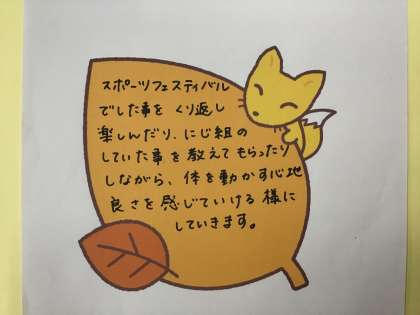 スポーツフェスティバル
でした事を くり返し
楽しんだり、にじ組の
していた事を教えてもらったり
しながら、体を動かす心地
良さを感じていける様に
していきます。